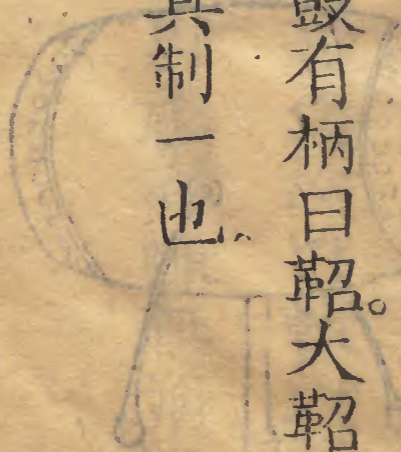 鼓有柄曰鞀。大鞀
其制一也